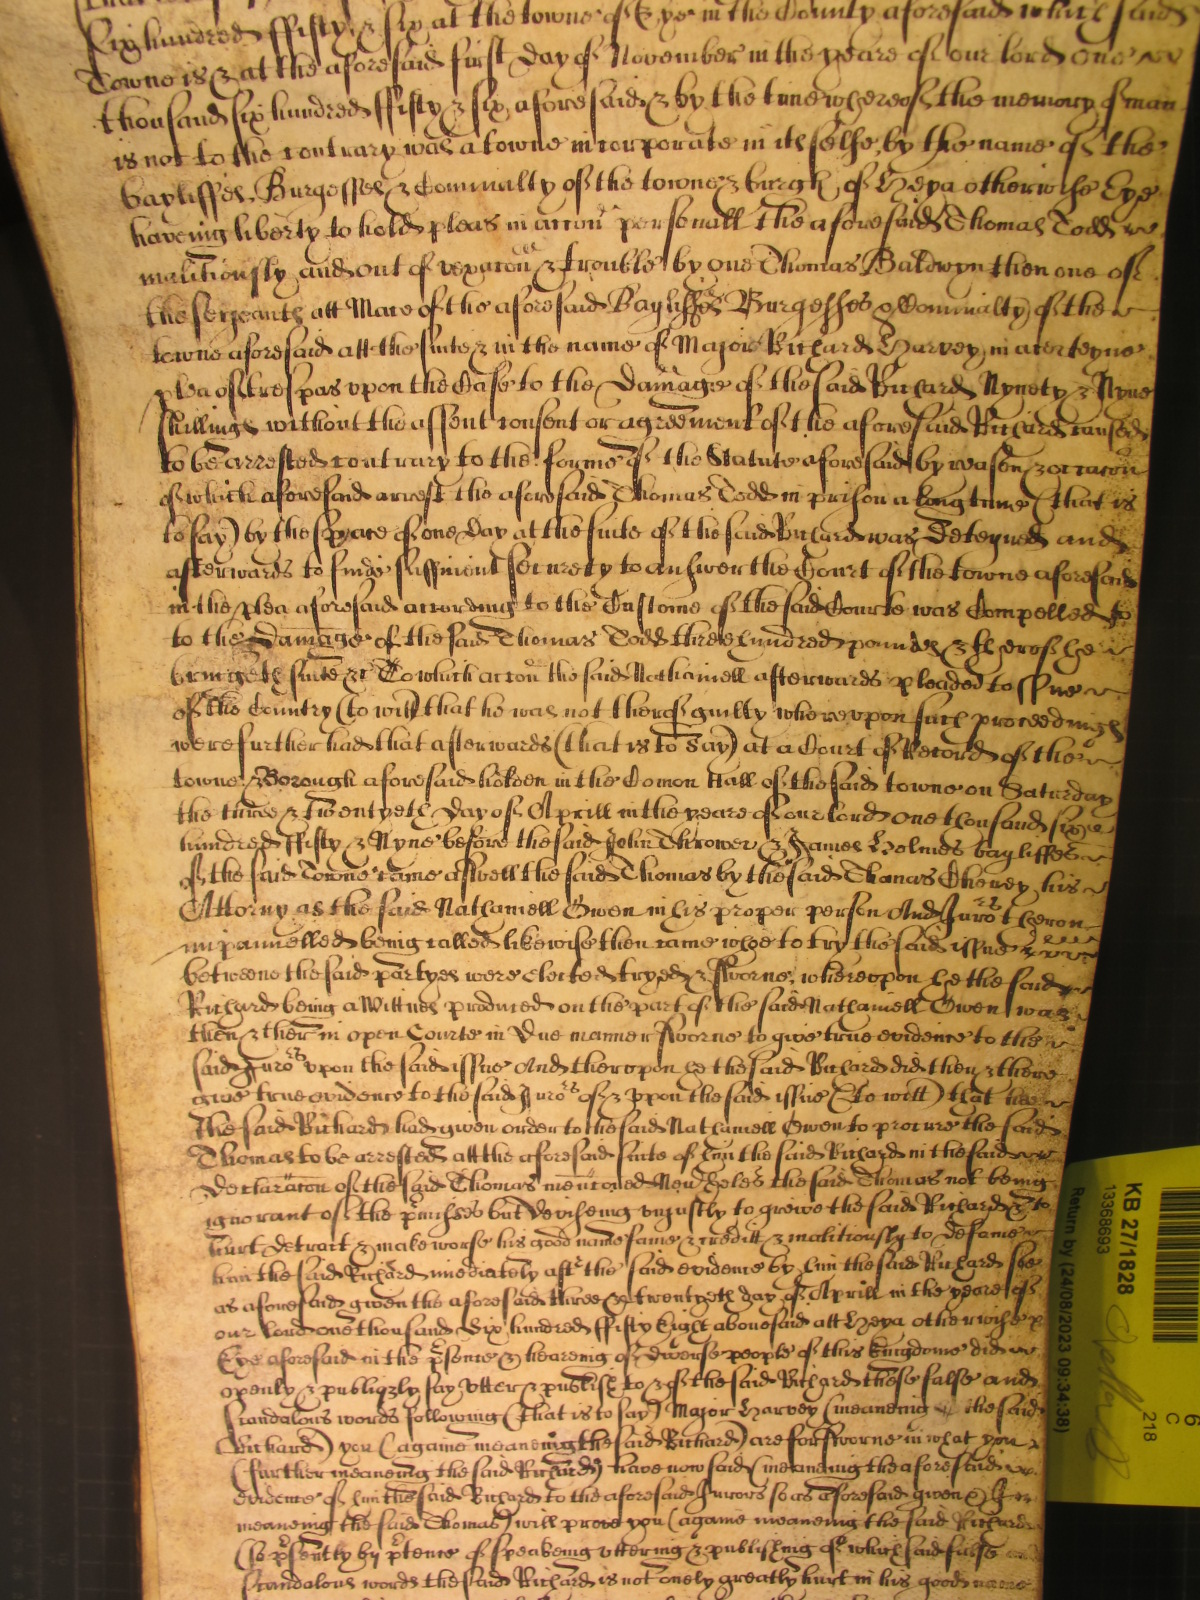 Six hundred ffifty & six at the towne of Eye in the County aforesaid which said
Towne is & at the aforesaid first day of November in the yeare of our lord one
thousand six hundred ffifty & six aforesaid & by the time whereof the memory of man
is not to the contrary was a towne incorporate in itselfe by the name of the
bayliffes, Burgesses & Cominalty of the towne & burgh of Heya otherwise Eye
haveing liberty to hold pleas in accon personall the aforesaid Thomas Todd
malitiously and out of vexacon & trouble by one Thomas Baldwyn then one of
the serjeants att Mace of the aforesaid Bayliffes Burgesses & Cominalty of the
towne aforesaid att the suite & in the name of Major Richard Harvey in a certeyne
plea of trespas vpon the Case to the Damage of the said Richard Nynety & Nyne
shillings without the assent consent or agreement of the aforesaid Richard caused
to be arrested contrary to the forme of the Statute aforesaid by reason & occacon
of which aforesaid arrest the aforesaid Thomas Todd in prison a long time (that is
to say) by the space of one day at the suite of the said Richard was deteyned and
afterwards to finde suffinient security to answer the Court of the towne aforesaid
in the plea aforesaid according to the Custome of the said Courte was Compelled to
to the Damage of the said Thomas Todd three hundred poundes & therof he
bringeth suite &c To which accon the said Nathaniell afterwards pleaded to issue
of the Country (to witt) that he was not therof guilty wherevpon such proceedings
were further had that afterwards (that is to say) at a Court of Record of the
towne & Borough aforesaid holden in the Comon Hall of the said towne on Saturday
the three & twentyeth day of Aprill in the yeare of our lord one thousand six
hundred ffifty & Nyne before the said John Thrower & James Holmes bayliffes
of the said Towne came aswell the said Thomas by the said Thomas Cheney his
Attorny as the said Nathaniell Owen in his proper person And Juro^rs theron
impannelled being called likewise then came whoe to try the said issue
betweene the said partyes were elected tryed & sworne, wherevpon he the said
Richard being a Wittnes produced on the part of the said Nathaniell Owen was
then & there in open Courte in due manner sworne to give true evidence to the
said Juro^rs vpon the said issue And therevpon he the said Richard did then & there
give true evidence to the said Juro^rs of & vpon the said issue (to witt) that hee
the said Richard had given order to the said Nathaniell Owen to procure the said
Thomas to be arrested att the aforesaid suite of him the said Richard in the said
Declaracon of the said Thomas menconed the said Thomas not being
ignorant of the p^rmisses but deviseing vnjustly to greive the said Richard & to
hurt detract & make worse his good name fame & creditt & malitiously to defame
him the said Richard imediately aft^r the said evidence by him the said Richard soe
as aforesaid given the aforesaid three & twentyeth day of Aprill in the yeare of
our lord one thousand six hundred ffifty Eight abovesaid att Heya otherwise
Eye aforesaid in the p^rsence & heareing of diverse people of this kingdome did
openly & publiqzly say vtter & publish to & of the said Richard these false and
scandalous words following (that is to say) Major Harvey (meaneing the said
Richard) you (againe meaneing the said Richard) are forsworne in what you
(further meaneing the said Richard) have now said (meaneing the aforesaid
evidence of him the said Richard to the aforesaid Jurors so as aforesaid given & I
meaneing the said Thomas) will prove you (againe meaneing the said Richard
(so p^rsently by p^rtence of speakeing vttering & publishing of which said false
scandalous words the said Richard is not onely greatly hurt in his good name
KB 27/1828
13368693
Return by (24/08/2023 09:34:38)
6
C
218